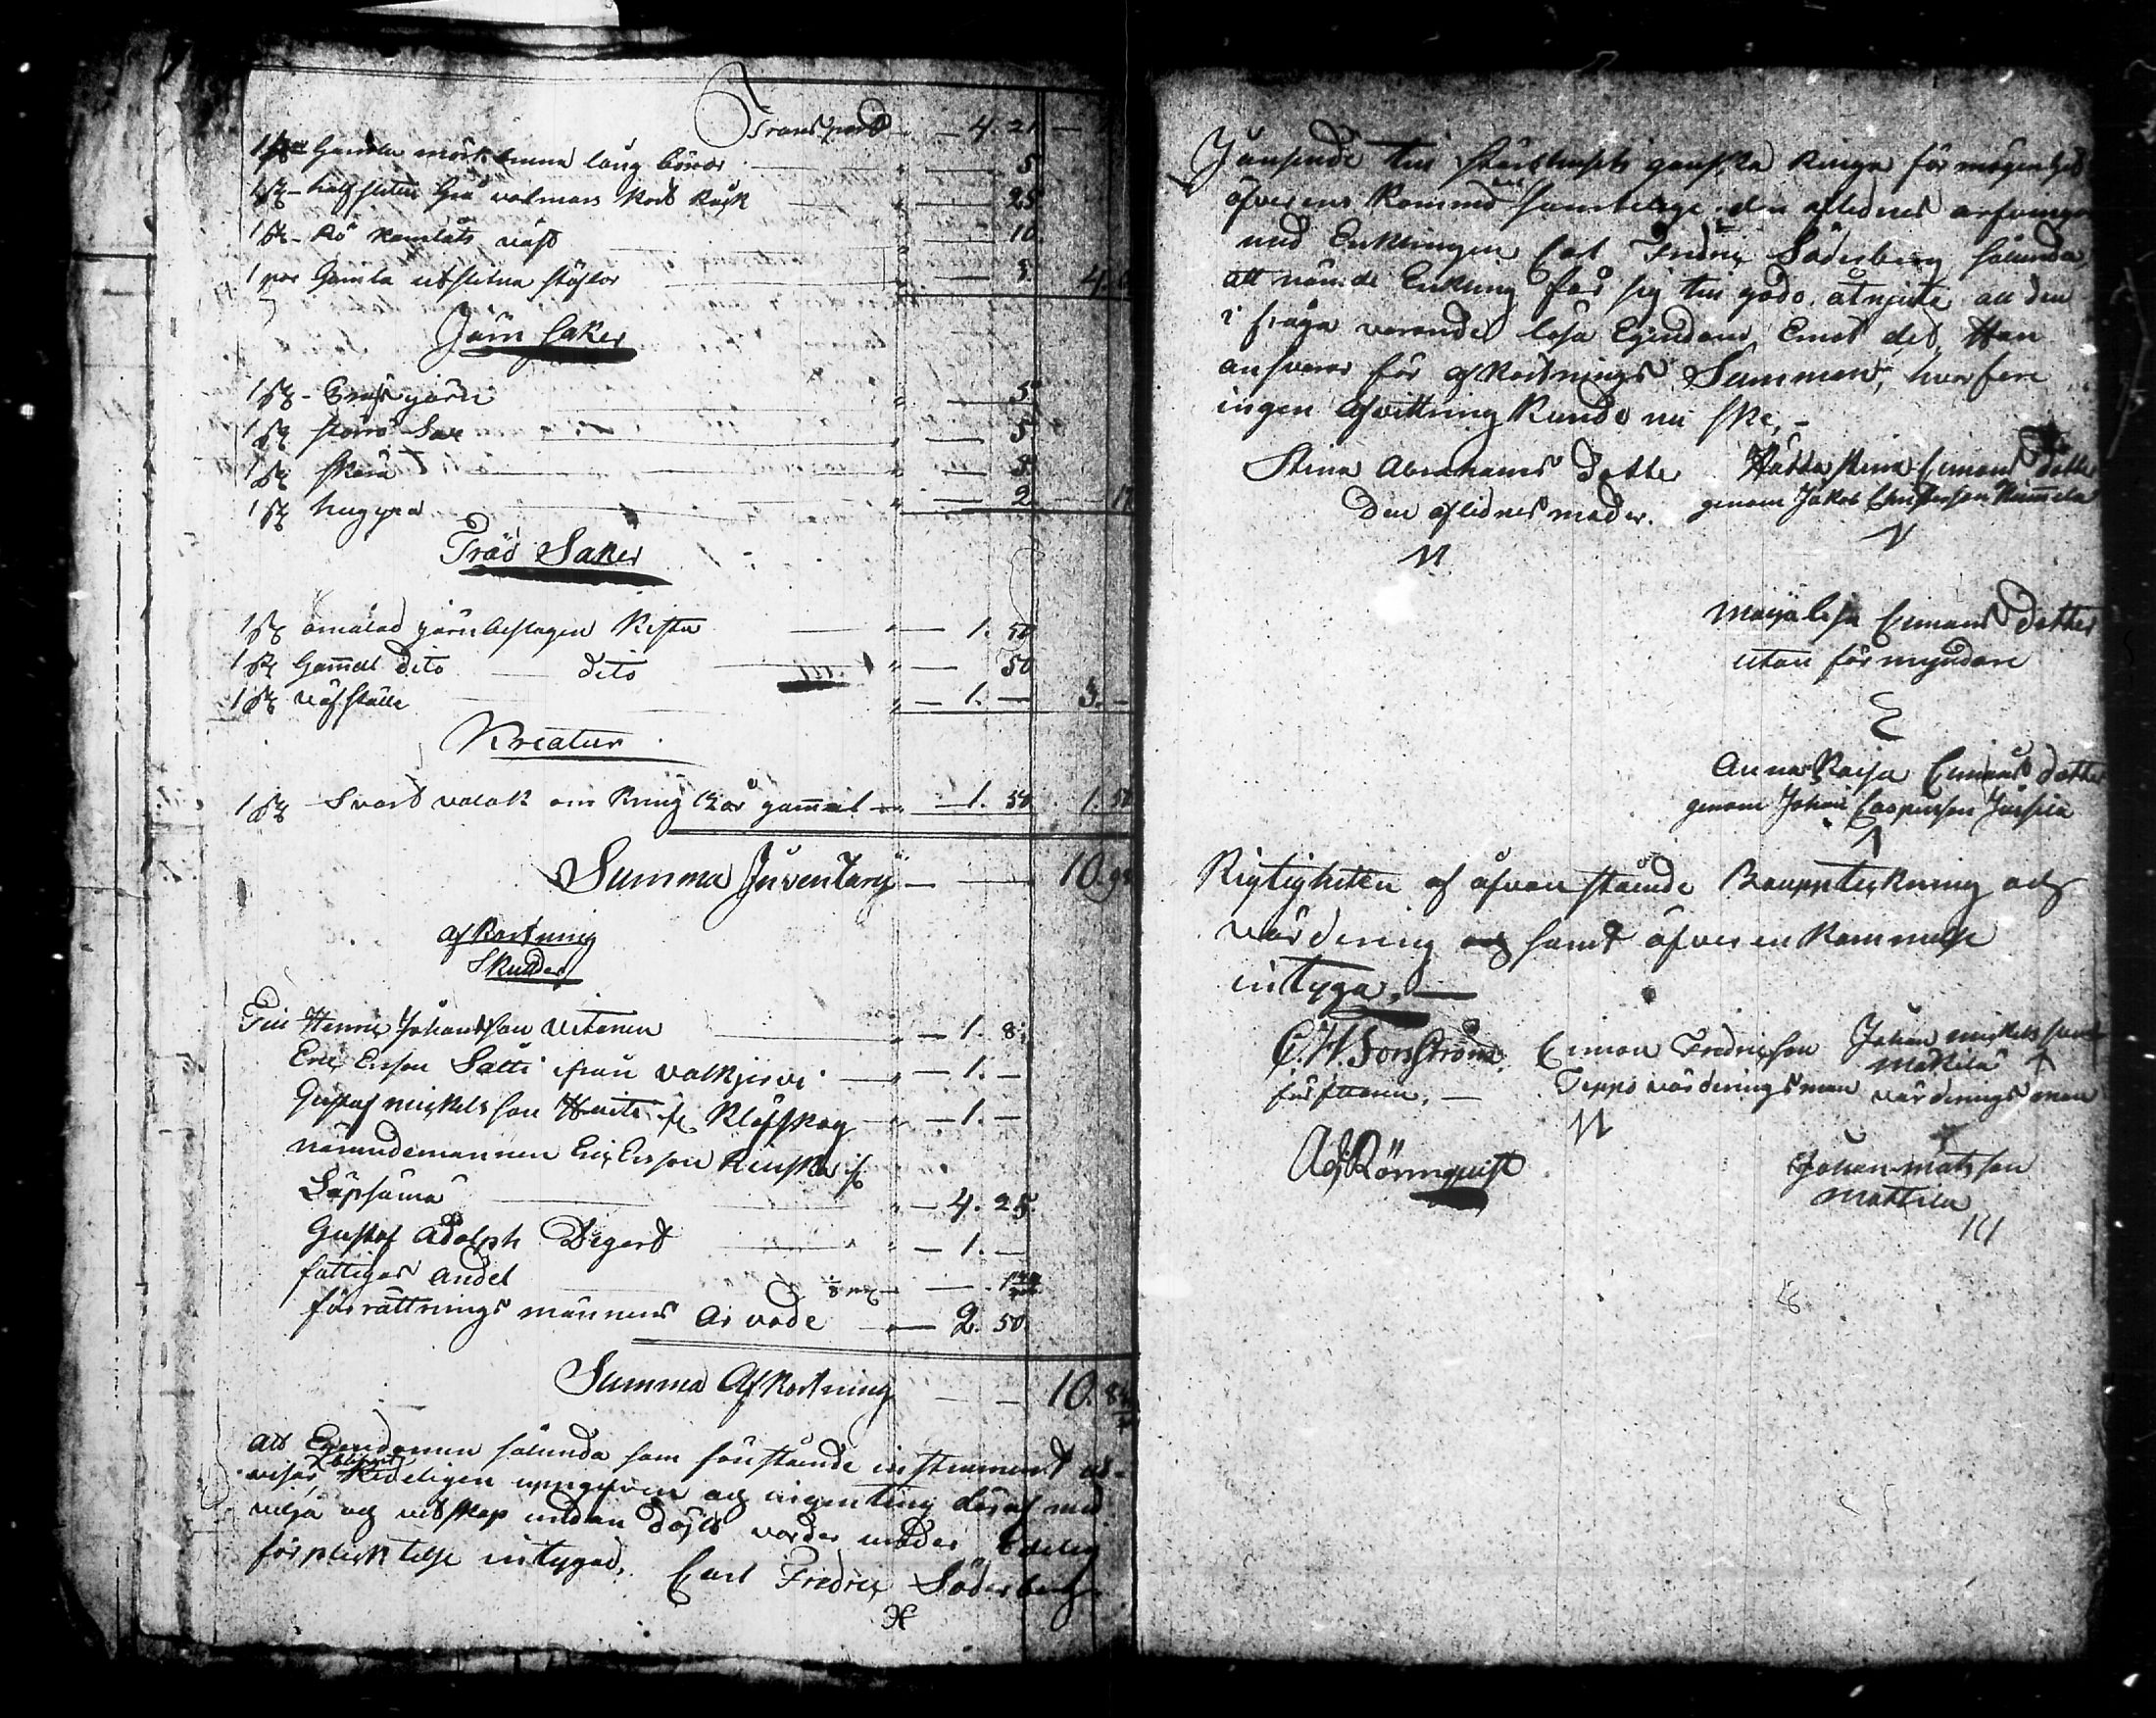 Transport — 4. 21
1 st Gamla mörkbruna långbönor — 5
1 st halfsliten Grå valmars Kort Råck — 25
1 st Rö Kamlåts väst — 10
1 par Gamla utslitna stöflor — 5. 4.
Järn Saker
1 st järn — 5
1 st — 5
1 st skära — 5
1 st huggyxa — 2 17
Träd Saker
1 st omålad järnbeslagen Kista — 1. 50
1 st Gam̄al dito dito — 50
1 st väfställe — 1. — 3. —
Kreatur
1 st Svart valak om kring 12 år gam̄al — 1. 50 1. 50
Summa Inventarij — 10. 93
afkortning
Skulder
Till Henric Johansson — 1. 8
Eric Ersson Sätti ifrån Valkjervi — 1. —
Gustaf Mickelsson Klöfskog — 1. —
nämndemannen Eric Ersson
— 4. 25.
Gustaf Adolph Digert — 1. —
fattiges andel 1/8 —
förrättnings männens Arvode — 2. 50
Summa Afkortning — 10. 84
Att Egendomen sålunda som förstående instrument ut-
visar, blifvit Redeligen uppgifven och ingenting deraf med
vilja och vetskap undan döljt varder under Edelig
förpliktelse intygad, Carl Fredric Söderberg
Jänseende till Stärbhusets ganska ringa förmögenhet
öfverens kommo samtelige den aflednes arfvingar
med Enklingen Carl Fredric Söderberg sålunda,
att nämnde Enkling får sig till godo åtnjuta all den
i fråga varande lösa Egendom, Emot det, Han
ansvarar för afkortnings Summan, hvarföre
ingen afvittring kunde nu ske, —
Stina Abrahams Dotter Stina Simons Dotter
Den aflednes moder. genom Jakob
Maija Lisa Simons Dotter
utan förmyndare
Anna Kaisa Simons dotter
genom Johan Caspersson
Rigtigheten af ofvanstående Bouppteckning och
värdering och samt öfverenkommelse
intyga, —
C. W. Forsström, Simon Fredricsson Johan Mickelsson
Teppo värderingsman Mäkilä värderingsman
Rönnqvist Johan Matsson
Mattila